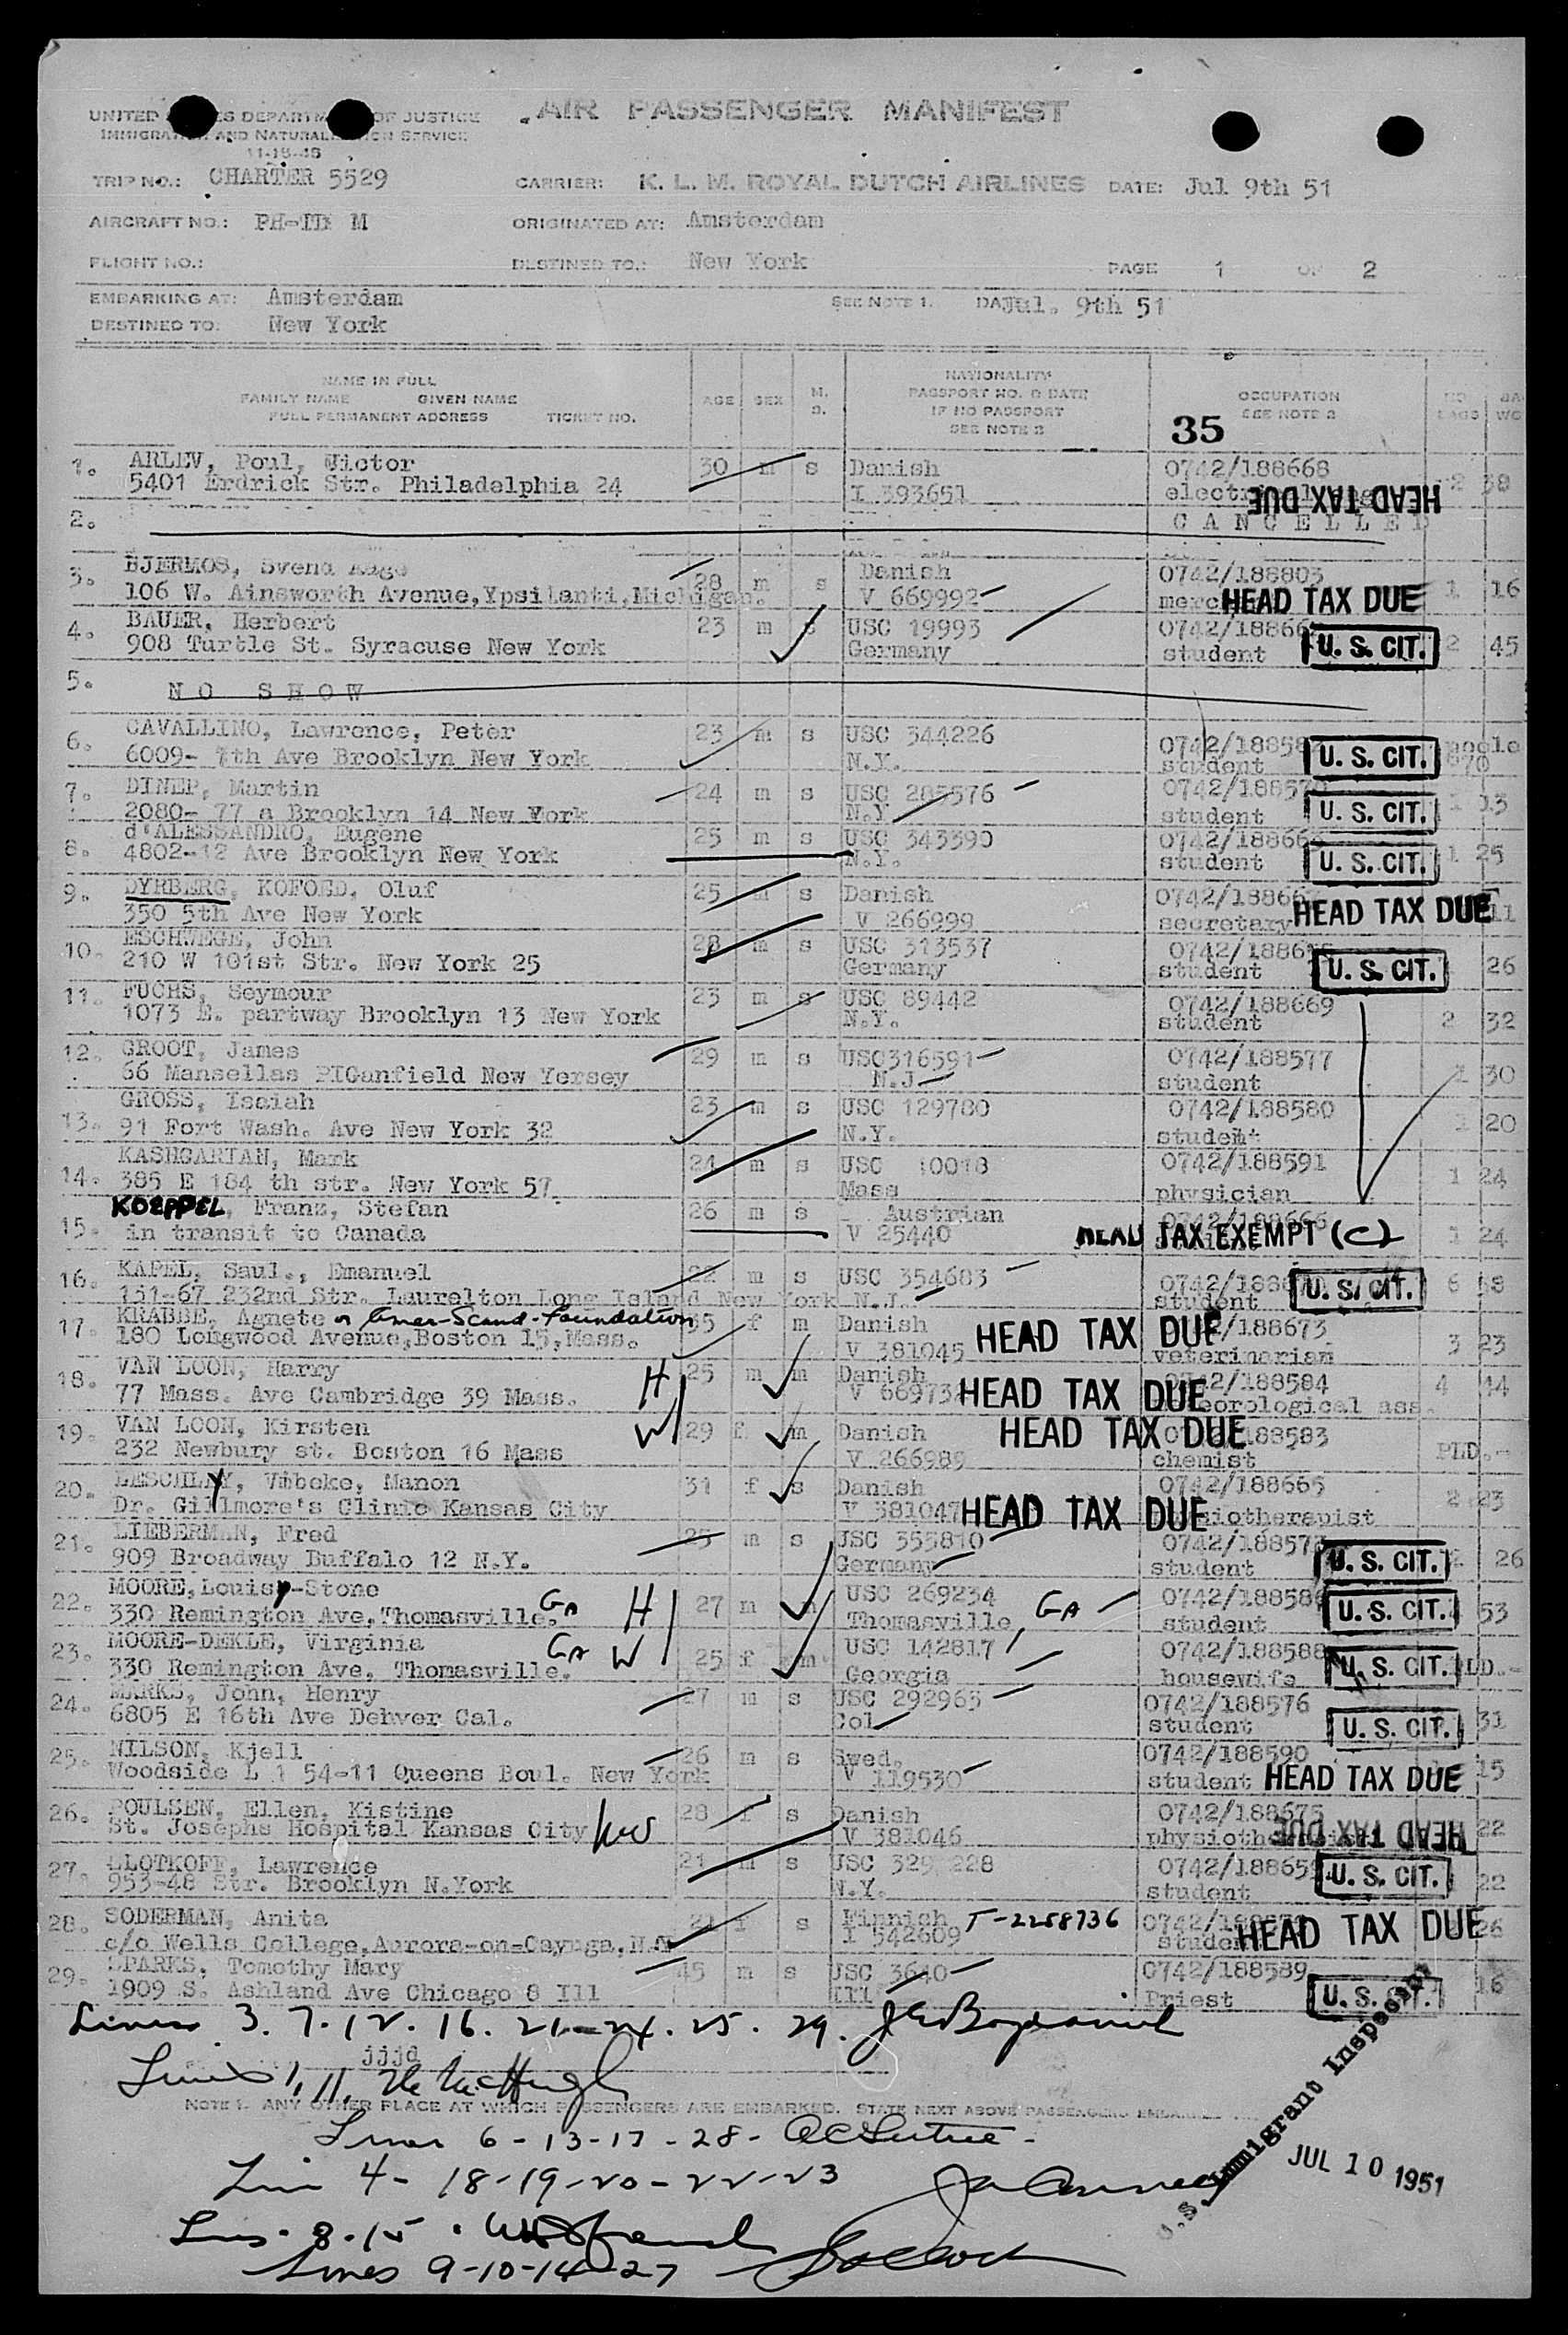 UNITED STATES DEPARTMENT OF JUSTICE
IMMIGRATION AND NATURALIZATION SERVICE
11-18-48
AIR PASSENGER MANIFEST
TRIP NO.: CHARTER 5529 CARRIER: K. L. M. ROYAL DUTCH AIRLINES DATE: Jul 9th 51
AIRCRAFT NO.: ORIGINATED AT: Amsterdam
FLIGHT NO.: DESTINED TO.: New York PAGE 1 OF 2
EMBARKING AT: Amsterdam SEE NOTE 1. DAJul. 9th 51
DESTINED TO: New York
NAME IN FULL
FAMILY NAME GIVEN NAME
FULL PERMANENT ADDRESS TICKET NO.
AGE SEX M. S.
NATIONALITY
PASSPORT NO. & DATE
IF NO PASSPORT
SEE NOTE 2
OCCUPATION
SEE NOTE 2
35
NO BAGS BA WG
1. ARLEV, Poul, Victor 30 m s Danish 0742/188668
5401 Erdrick Str. Philadelphia 24 I 393651 2 38
HEAD TAX DUE
2. CANCELLED
3. BJERMOS, Svend Aage 28 m s Danish 0742/188803
106 W. Ainsworth Avenue,Ypsilanti,Michigan. V 669992 HEAD TAX DUE 1 16
4. BAUER, Herbert 23 m s USC 19993
908 Turtle St. Syracuse New York Germany student U. S. CIT. 2 45
5. NO SHOW
6. CAVALLINO, Lawrence, Peter 23 m s USC 344226
6009- 7th Ave Brooklyn New York N.Y. student U. S. CIT.
7. DINEP, Martin 24 m s USC 285576
2080- 77 a Brooklyn 14 New York N.Y student U. S. CIT. 1 13
8. d'ALESSANDRO, Eugene 25 m s USC 343390
4802-12 Ave Brooklyn New York N.Y. student U. S. CIT. 1 25
9. DYRBERG, KOFOED, Oluf 25 m s Danish
350 5th Ave New York V 266999 secretary HEAD TAX DUE 11
10. ESCHWEGE, John 28 m s USC 313537
210 W 101st Str. New York 25 Germany student U. S. CIT. 26
11. FUCHS, Seymour 23 m s USC 89442 0742/188669
1073 E. partway Brooklyn 13 New York N.Y. student 2 32
12. GROOT, James 29 m s USC316591 0742/188577
66 Mansellas PlGanfield New Yersey N.J student 1 30
13. GROSS, Isaiah 23 m s USC 129780 0742/188580
91 Fort Wash. Ave New York 32 N.Y. student 1 20
14. KASHGARIAN, Mark 24 m s USC 10018 0742/188591
385 E 184 th str. New York 57 Mass physician 1 24
15. KOEPPEL, Franz, Stefan 26 m s Austrian
in transit to Canada V 25440 HEAD TAX EXEMPT (C) 1 24
16. KAPEL, Saul., Emanuel 22 m s USC 354683
131-67 232nd Str. Laurelton Long Island New York N.J. student U. S. CIT. 6 58
17. KRABBE, Agnete Amer-Scand-Foundation 35 f m Danish /188673
180 Longwood Avenue,Boston 15,Mass. V 381045 HEAD TAX DUE veterinarian 3 23
18. VAN LOON, Harry H 25 m m Danish 0742/188584
77 Mass. Ave Cambridge 39 Mass. HEAD TAX DUE 4 44
19. VAN LOON, Kirsten W 29 f m Danish HEAD TAX DUE 0742/188583
232 Newbury st. Boston 16 Mass V 266989 chemist PLD.-
20. LESCHLEY, Vibeke, Manon 31 f s Danish 0742/188665
Dr. Gillmore's Clinic Kansas City V 381047 HEAD TAX DUE physiotherapist 2 23
21. LIEBERMAN, Fred 25 m s USC 355810
909 Broadway Buffalo 12 N.Y. Germany student U. S. CIT. 2 26
22. MOORE,Louis,-Stone 27 m m USC 269234
330 Remington Ave,Thomasville. GA H Thomasville, GA student U. S. CIT. 53
23. MOORE-DEKLE, Virginia 25 f m USC 142817 0742/188588
330 Remington Ave. Thomasville. GA W Georgia housewife U. S. CIT. PLD.-
24. MARKS, John, Henry 27 m s USC 292963 0742/188576
6805 E 16th Ave Dehver Cal. Col student U. S. CIT. 31
25. NILSON, Kjell 26 m s Swed. 0742/188590
Woodside L 1 54-11 Queens Boul. New York V 119530 student HEAD TAX DUE 15
26. POULSEN, Ellen, Kistine 28 f s Danish 0742/188675
St. Josephs Hospital Kansas City V 381046 HEAD TAX DUE 22
27. SLOTKOFF, Lawrence 21 m s USC 329 228
953-48 Str. Brooklyn N.York N.Y. student U. S. CIT. 22
28. SODERMAN, Anita 21 f s Finnish T-2258736
c/o Wells College,Aurora-on-Cayuga,N.Y I 542609 HEAD TAX DUE 26
29. SPARKS, Tomothy Mary 45 m s USC 3640 0742/188589
1909 S. Ashland Ave Chicago 8 Ill Ill Priest U. S. CIT. 16
Lines 3. 7. 12. 16. 21-24. 25. 29.
jjjd
Lines 1, 11,
NOTE 1. ANY OTHER PLACE AT WHICH PASSENGERS ARE EMBARKED. STATE NEXT ABOVE PASSENGERS
Lines 6-13-17-28-
Line 4- 18-19-20-22-23
Lines 8-15
Lines 9-10-14-27
U.S. Immigrant Inspector
JUL 10 1951